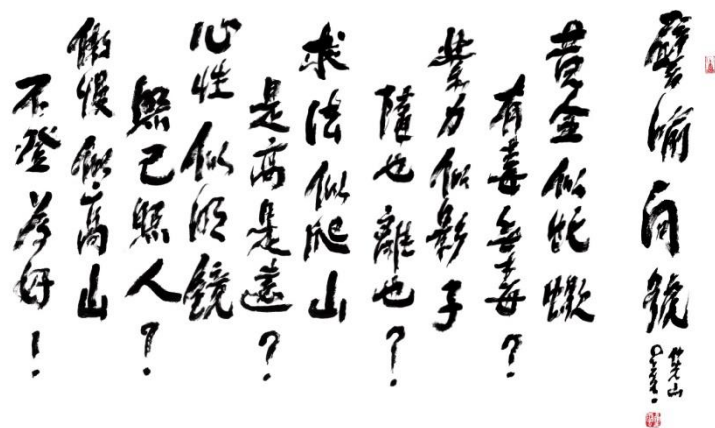 譬喻問號
佛光山
黃金似蛇蠍
有毒無毒？
業力似影子
隨也離也？
求法似爬山
是高是遠？
心性似明鏡
照己照人？
傲慢似高山
不登為好！